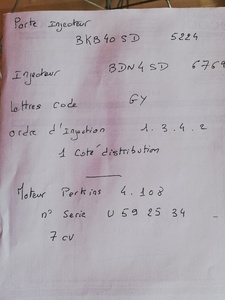 Porte Injecteur
BKB40SD 5224
Injecteur
BDN4SD 6769
lettres code GY
ordre d'Injection 1.3.4.2
1 Coté distribution
Moteur Perkins 4.108
n° Serie U592534
7cv